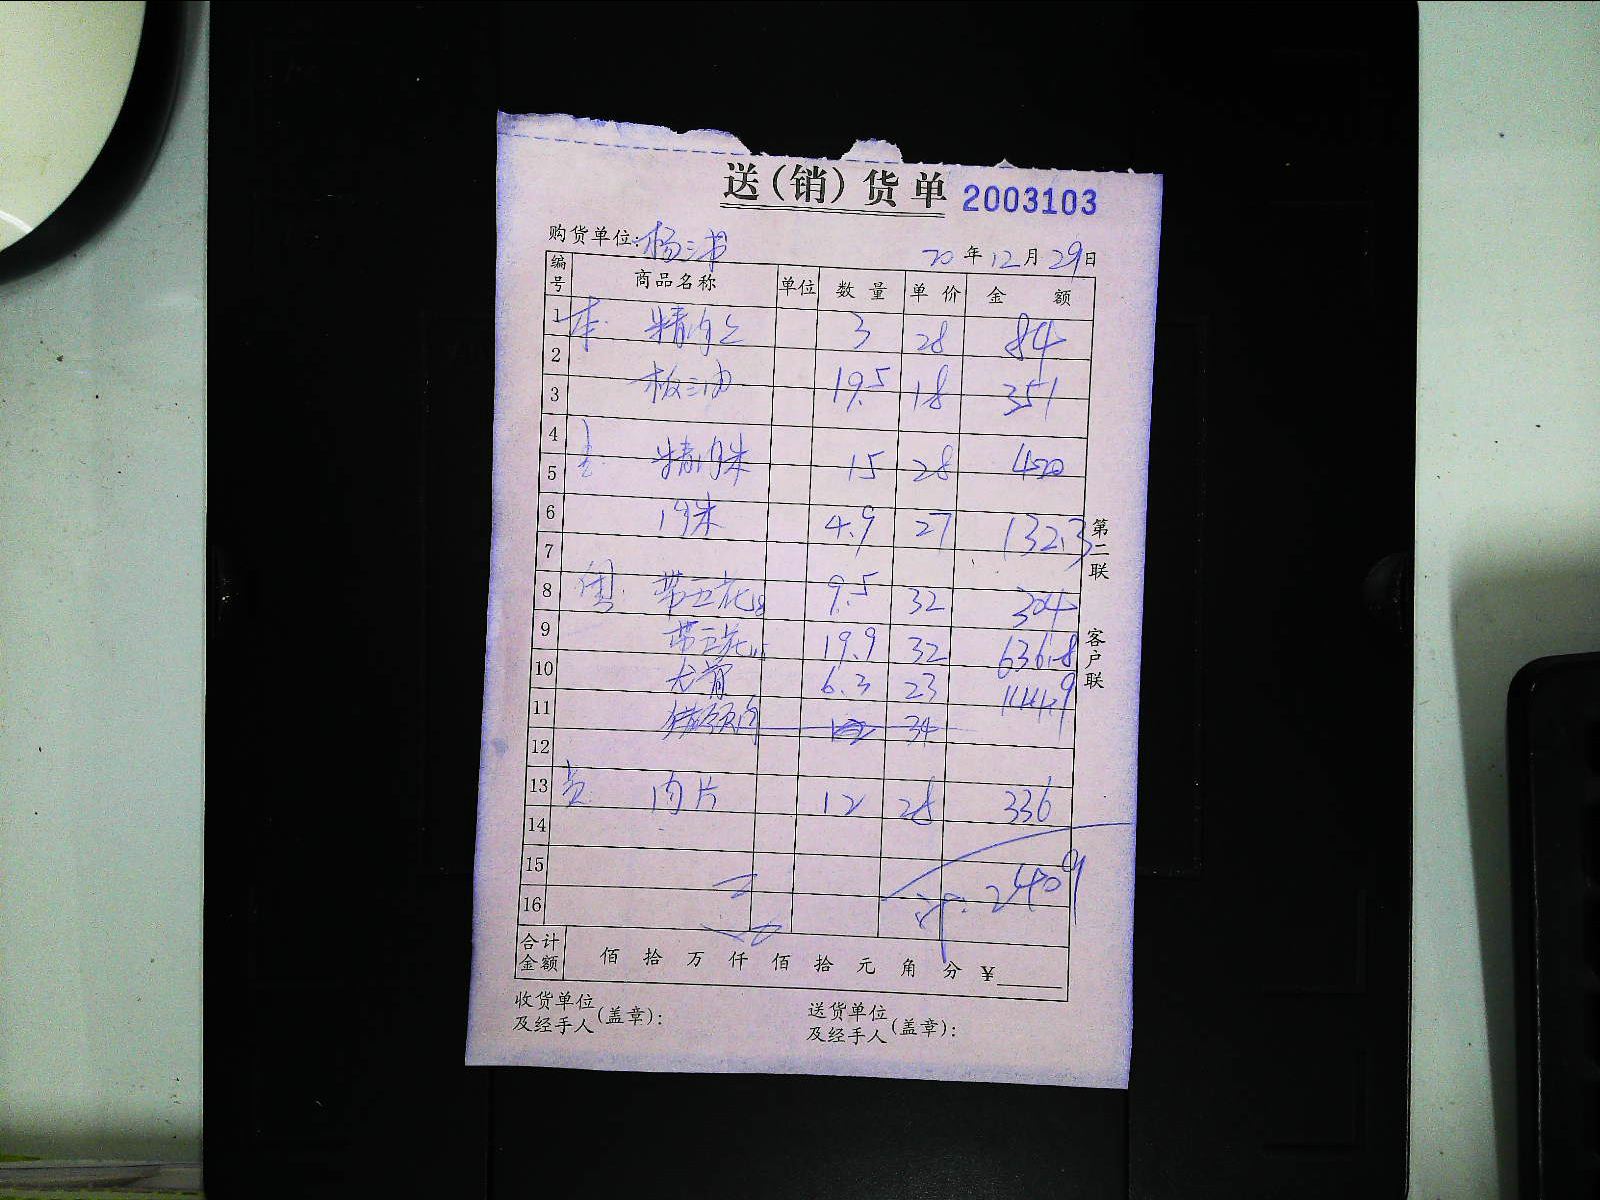 送(销)货单 2003103
购货单位: 杨 20年12月29日
编号 商品名称 单位 数量 单价 金额
1 精肉 3 28 84
2
3 板油 19.5 18 351
4
5 精肉末 15 28 420
6 肉末 4.9 27 132.3
7
8 带五花 9.5 32 304
9 带五花 19.9 32 636.8
10 龙骨 6.3 23 144.9
11 34
12
13 肉片 12 28 336
14
15
16 计: 2409
合计金额 佰 拾 万 仟 佰 拾 元 角 分 ¥
收货单位及经手人(盖章):
送货单位及经手人(盖章):
第二联 客户联